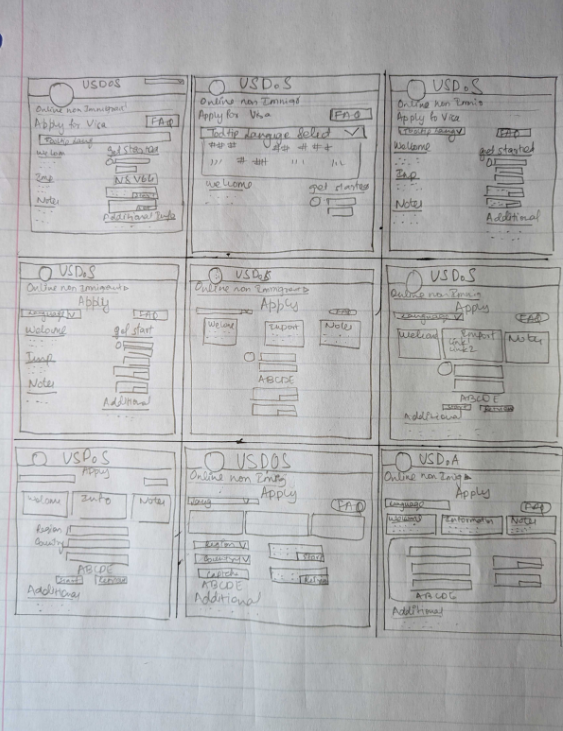 USDOS
Online non Immigrant
Apply for Visa
FAQ
get started
Imp
Notes
Additional Info
USDoS
Online non Immig
Apply for Visa
FAQ
Tooltip Language Select V
Welcome
get started
USDoS
Online non Immig
Apply fo Visa
FAQ
Welcome
get started
Imp
Notes
Additional
USDoS
Apply
FAQ
Welcome
get start
Imp
Notes
Additional
USDoS
Apply
FAQ
Welcome
Import
Notes
ABCDE
USDoS
Online non Immig
Apply
Language V
FAQ
Welcome
Import
Notes
Link1
Link2
ABCDE
Additional
USDoS
Apply
Welcome
Info
Notes
Region
Country
ABCDE
Additional
USDOS
Online non Immig
Apply
Lang V
FAQ
Region V
Country V
Captch
Start
ABCDE
Additional
USDoA
Online non Immig
Apply
Language
FAQ
Welcome
Information
Notes
ABCDE
Additional